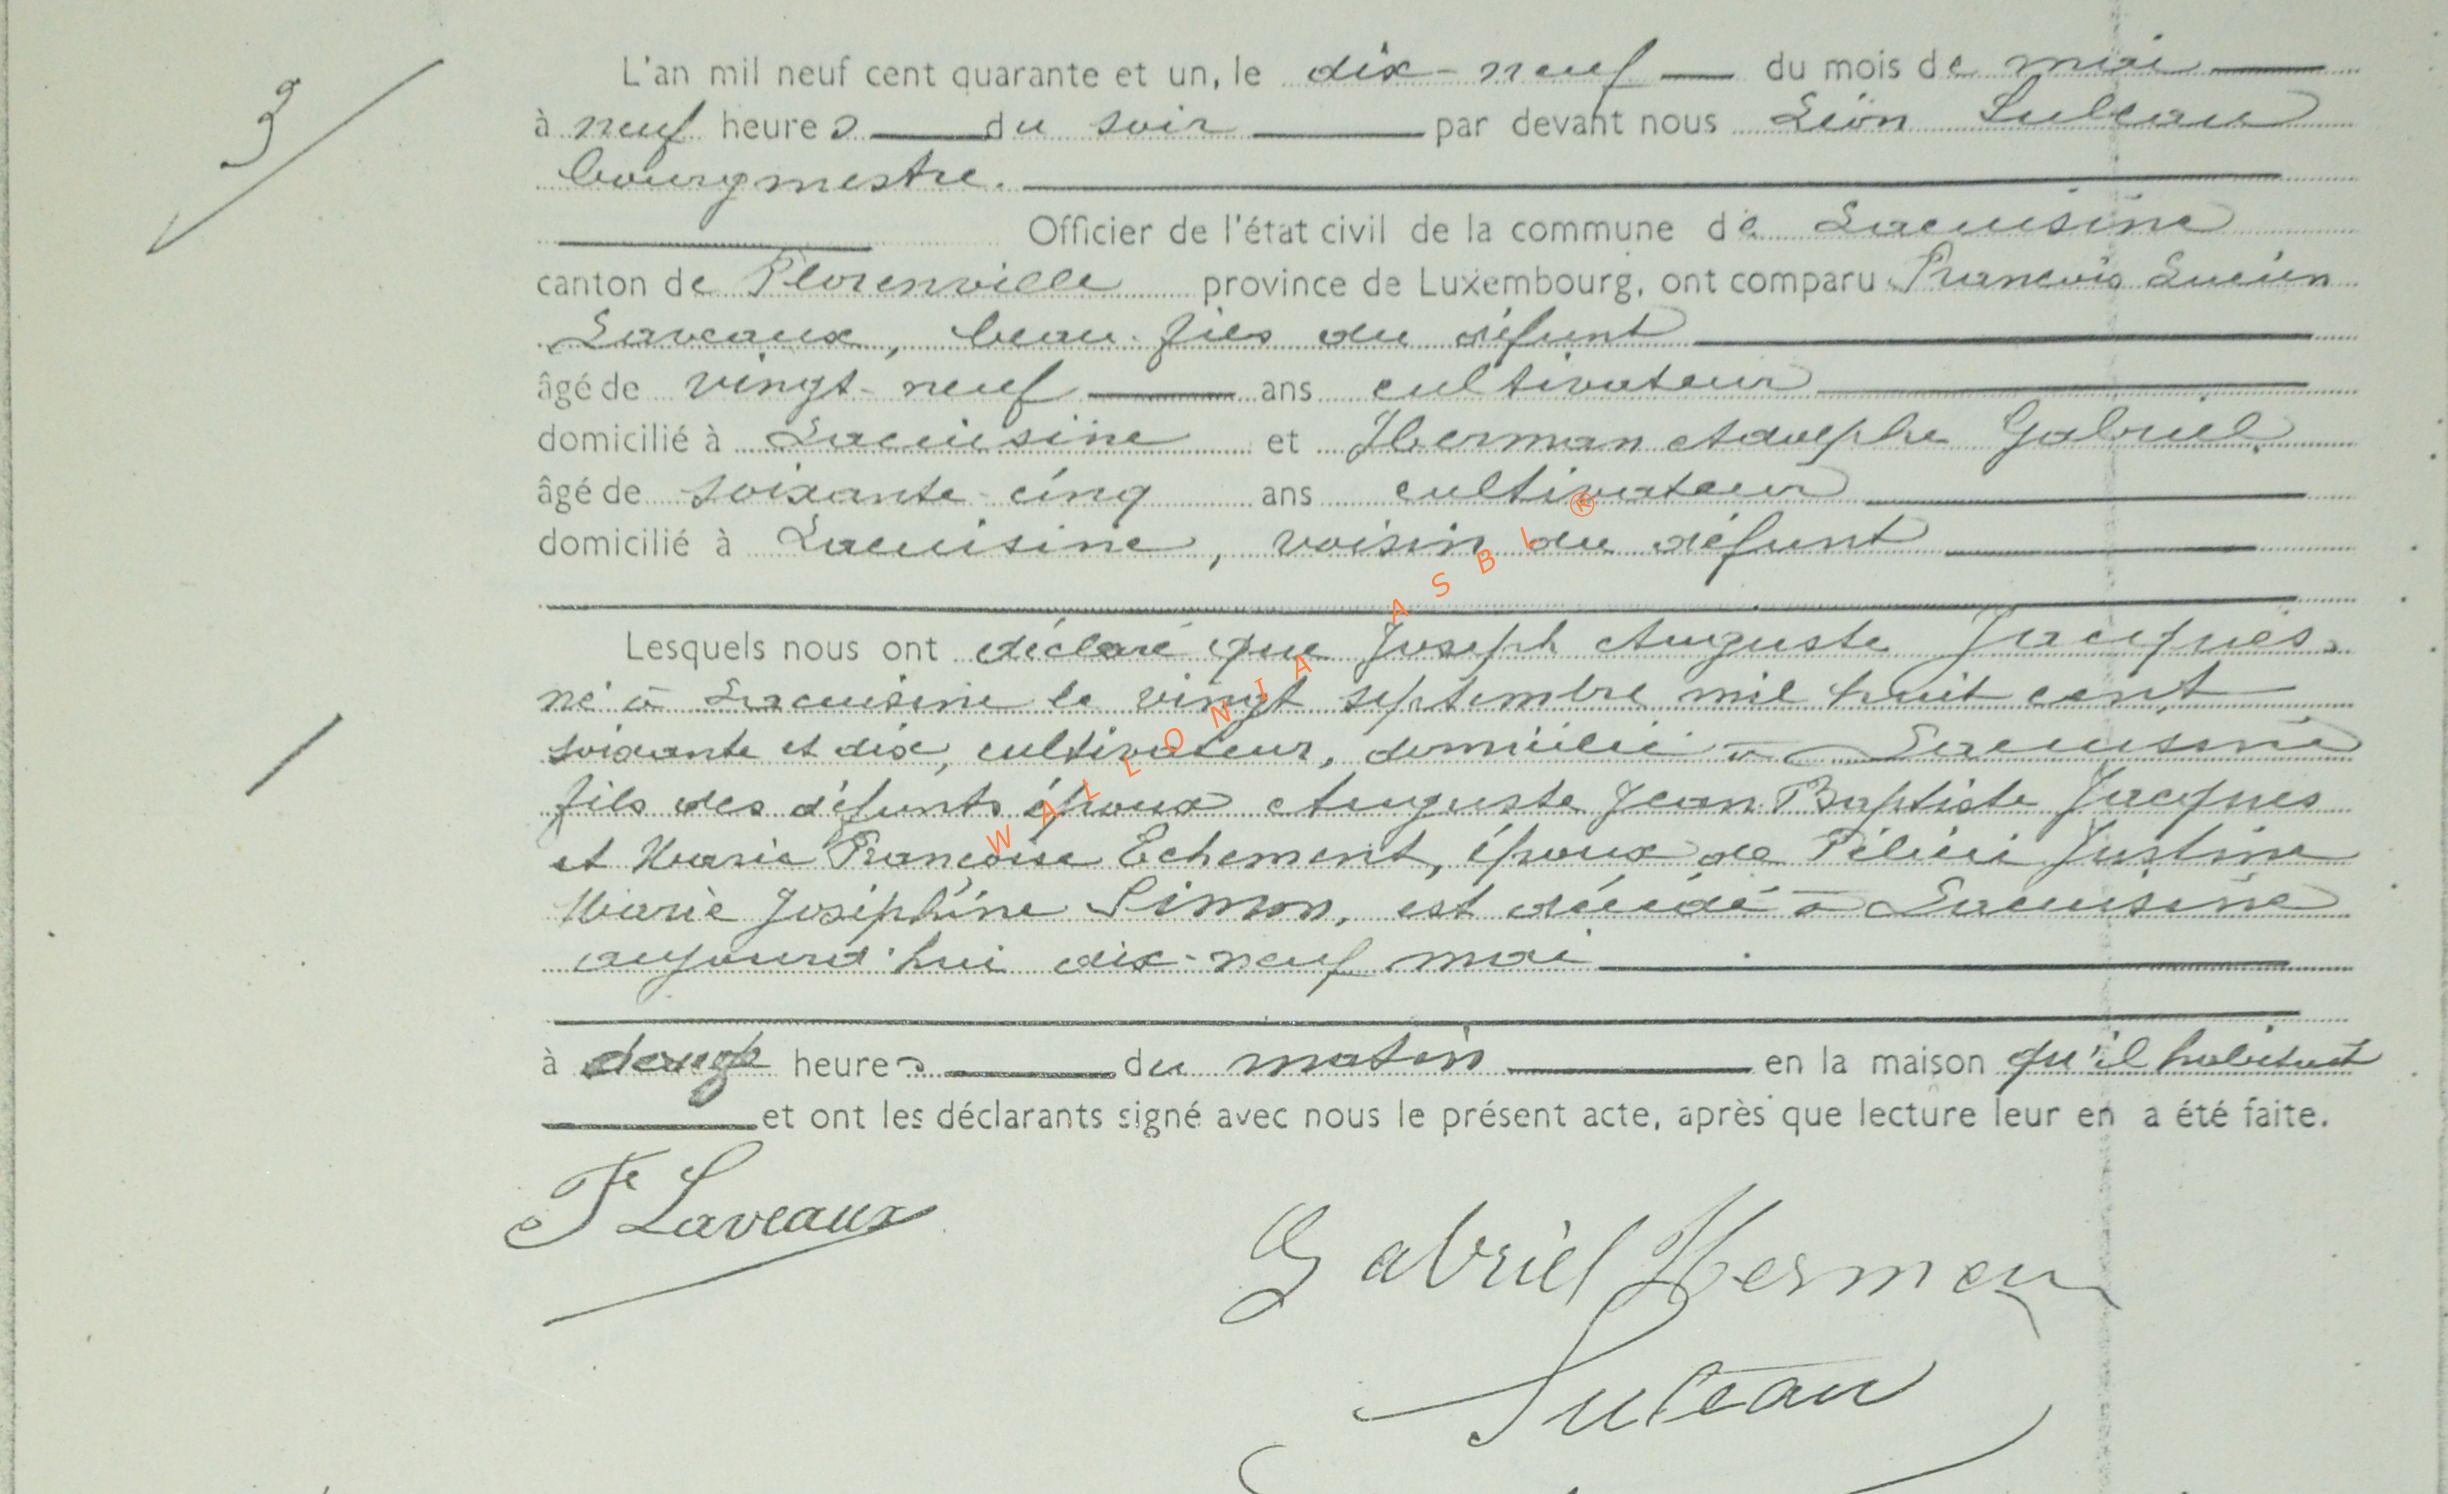 3
L'an mil neuf cent quarante et un, le dix-neuf du mois de mai
à neuf heures du soir par devant nous Léon Suleau
bourgmestre.
Officier de l'état civil de la commune de Lacuisine
canton de Florenville province de Luxembourg, ont comparu François Lucien
Laveaux, beau-fils du défunt
âgé de vingt-neuf ans cultivateur
domicilié à Lacuisine et Herman Adolphe Gabriel
âgé de soixante-cinq ans cultivateur
domicilié à Lacuisine, voisin du défunt
Lesquels nous ont déclaré que Joseph Auguste Jacques,
né à Lacuisine le vingt septembre mil huit cent
soixante et dix, cultivateur, domicilié à Lacuisine
fils des défunts époux Auguste Jean Baptiste Jacques
et Marie Françoise Echement, époux de Félicie Justine
Marie Joséphine Simon, est décédé à Lacuisine
aujourd'hui dix-neuf mai
à heures du matin en la maison qu'il habitait
et ont les déclarants signé avec nous le présent acte, après que lecture leur en a été faite.
F Laveaux
Gabriel Herman
Suleau
WALLONIA ASBL ®